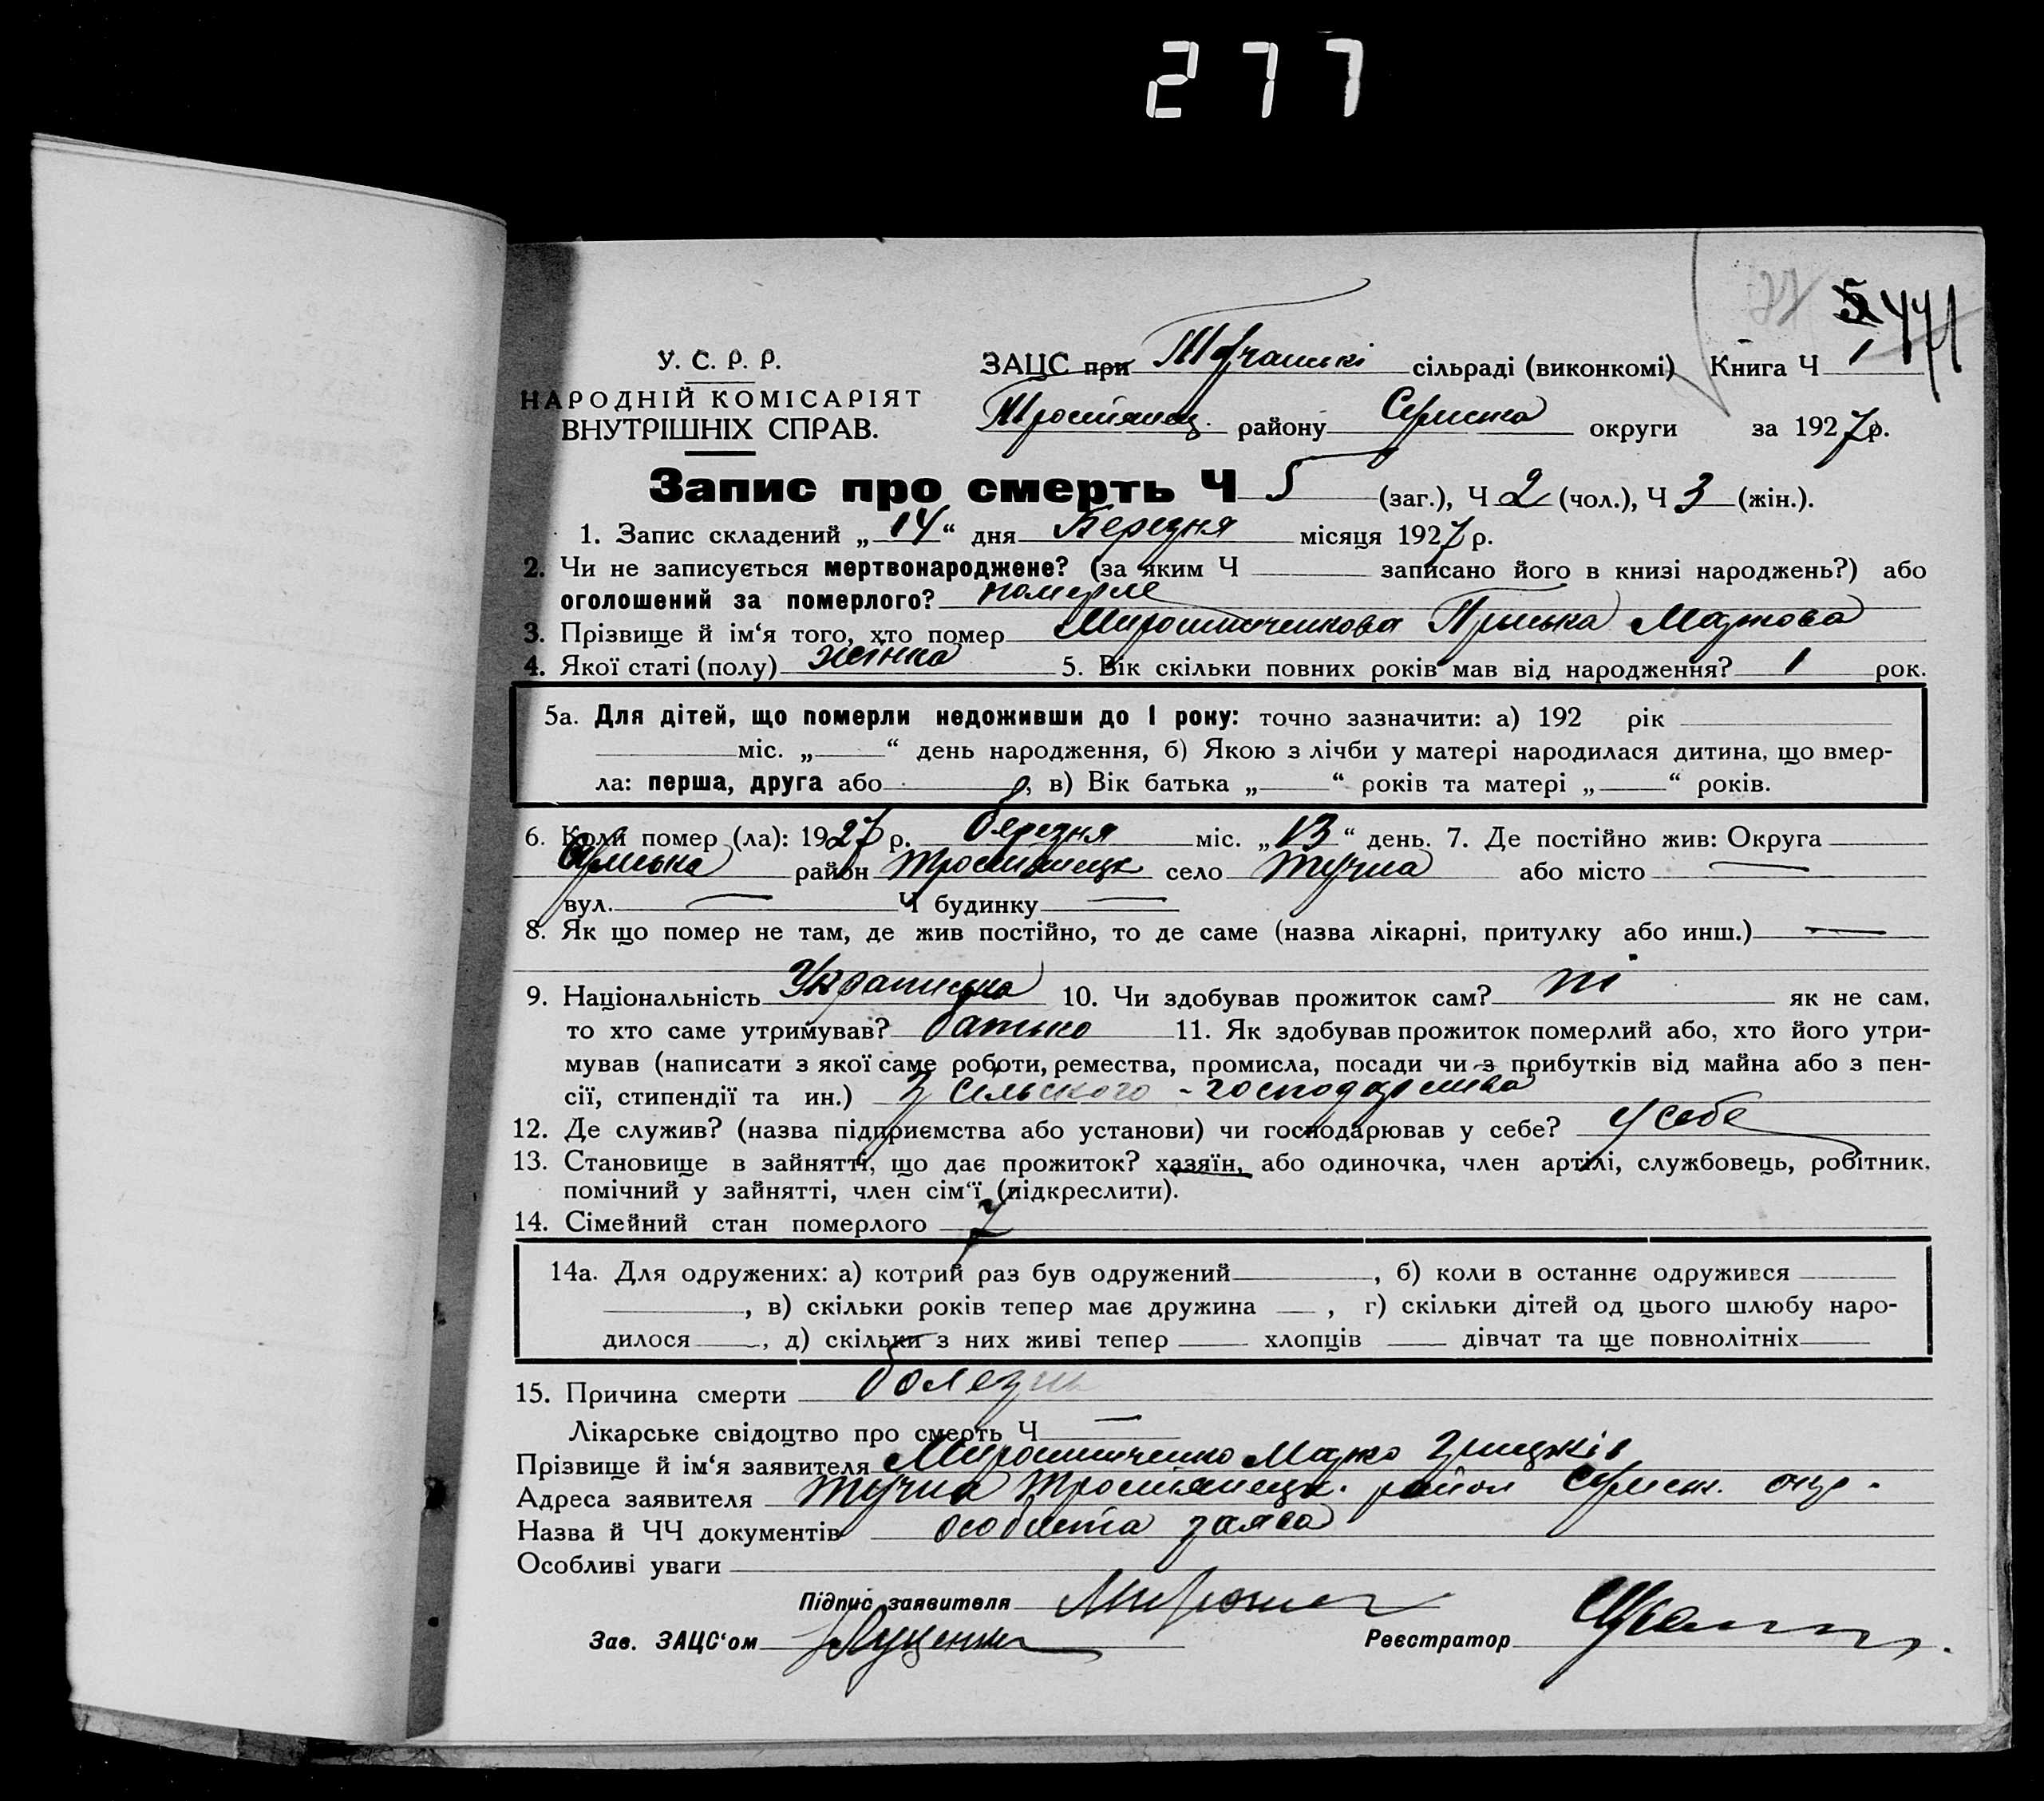 277
5 44
У. С. Р. Р.
НАРОДНІЙ КОМІСАРІЯТ
ВНУТРІШНІХ СПРАВ.
ЗАЦС при сільраді (виконкомі) Книга Ч 1
Тростянец. району Сумська округи за 1927 р.
Запис про смерть Ч 5 (заг.), Ч 2 (чол.), Ч 3 (жін.).
1. Запис складений „ 14 “ дня Березня місяця 1927 р.
2. Чи не записується мертвонароджене? (за яким Ч записано його в книзі народжень?) або
оголошений за померлого? померле
3. Прізвище й ім‘я того, хто помер Мирошниченкова Пріська Маркова
4. Якої статі (полу) жінка 5. Вік скільки повних років мав від народження? 1 рок.
5а. Для дітей, що померли недоживши до 1 року: точно зазначити: а) 192 рік
міс. „ “ день народження, б) Якою з лічби у матері народилася дитина, що вмер-
ла: перша, друга або , в) Вік батька „ “ років та матері „ “ років.
6. Коли помер (ла): 1927 р. березня міс. „ 13 “ день. 7. Де постійно жив: Округа
Сумська район Тростянецьк село Тучна або місто —
вул. — Ч будинку —
8. Як що помер не там, де жив постійно, то де саме (назва лікарні, притулку або инш.) —
9. Національність Українська 10. Чи здобував прожиток сам? ні як не сам,
то хто саме утримував? батько 11. Як здобував прожиток померлий або, хто його утри-
мував (написати з якої саме роботи, ремества, промисла, посади чи з прибутків від майна або з пен-
сії, стипендії та ин.) з сільського - господарства
12. Де служив? (назва підприємства або установи) чи господарював у себе? у себе
13. Становище в зайнятті, що дає прожиток? хазяїн, або одиночка, член артілі, службовець, робітник,
помічний у зайнятті, член сім‘ї (підкреслити).
14. Сімейний стан померлого
14а. Для одружених: а) котрий раз був одружений , б) коли в останнє одружився
, в) скільки років тепер має дружина , г) скільки дітей од цього шлюбу наро-
дилося , д) скільки з них живі тепер хлопців дівчат та ще повнолітніх
15. Причина смерти болезнь
Лікарське свідоцтво про смерть Ч —
Прізвище й ім‘я заявителя Мирошниченко Марко Грицьків
Адреса заявителя Тучна Тростянецьк. район Сумськ. окр.
Назва й ЧЧ документів особиста заява
Особливі уваги
Підпис заявителя
Зав. ЗАЦС‘ом Луценко Реєстратор